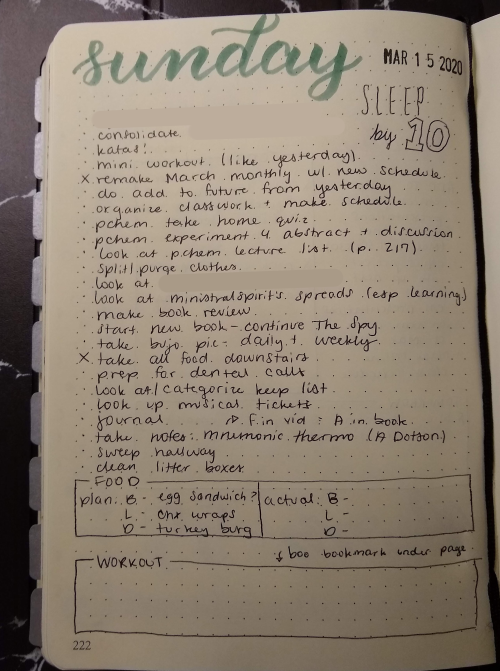 sunday
MAR 15 2020
SLEEP
by 10
consolidate
katas!
mini workout (like yesterday)
x remake March monthly w/ new schedule
do add to future from yesterday
organize classwork + make schedule
pchem take home quiz
pchem experiment 4 abstract + discussion
look at pchem lecture list (p. 217)
split/purge clothes
look at
look at ministralspirit's spreads (esp learning)
make book review
start new book - continue The Spy
take bujo pic - daily + weekly
x take all food downstairs
prep for dental calls
look at/categorize keep list
look up musical tickets
journal F in vid : A in book
take notes: mnemonic thermo (A Dotson)
sweep hallway
clean litter boxes
FOOD
plan: B - egg sandwich? actual: B -
L - chx wraps L -
D - turkey burg D -
boo bookmark under page
WORKOUT
222